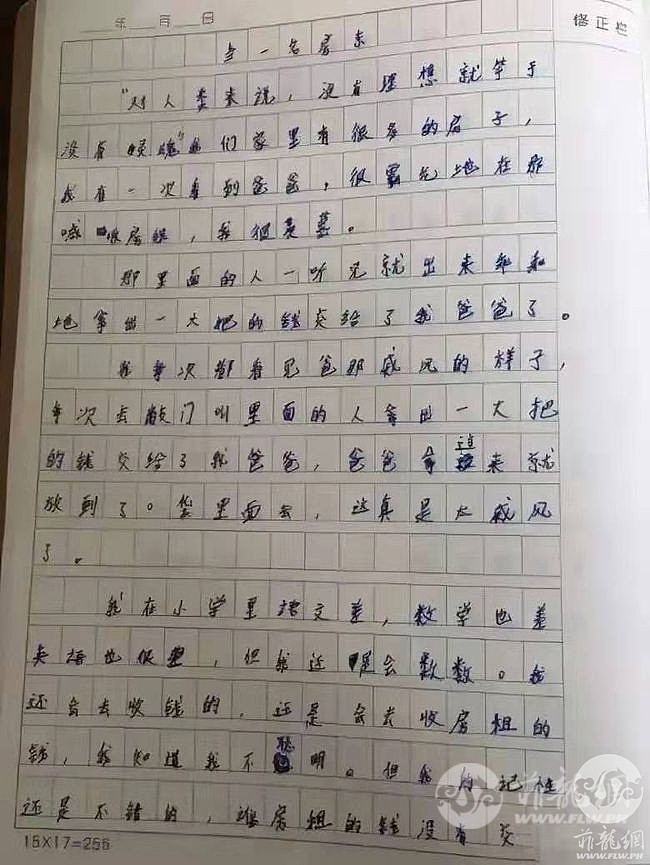 年 月 日
修正栏
当一名房东
"对人类来说，没有理想就等于
没有灵魂"我们家里有很多的房子，
我有一次看到爸爸，很霸气地在那
喊收房租，我很羡慕。
那里面的人一听见就出来乖乖
地拿出一大把的钱交给了我爸爸了。
我每次都看见爸那威风的样子，
每次去敲门叫里面的人拿出一大把
的钱交给了我爸爸，爸爸拿过来就
放到了口袋里面去，这真是太威风
了。
我在小学里语文差，数学也差
英语也很，但我还是会数数。我
还会去收钱的，还是会去收房租的
钱，我知道我不聪明。但我的记性
还是不错的，谁房租的钱没有交
15X17=255
菲龍網
WWW.FLW.PH
菲龍網
WWW.FLW.PH